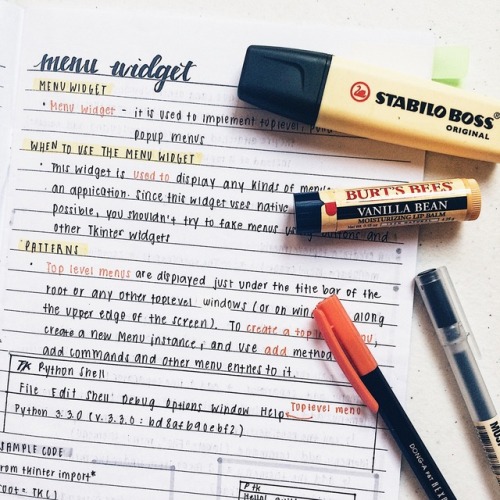 menu widget
MENU WIDGET
• Menu widget - it is used to implement toplevel, pull
popup menus
WHEN TO USE THE MENU WIDGET
• This widget is used to display any kinds of menus
an application. Since this widget uses native
possible, you shouldn't try to fake menus using buttons and
other Tkinter widgets
PATTERNS
• Top level menus are displayed just under the title bar of the
root or any other toplevel windows (or on along
the upper edge of the screen). To create a top menu,
create a new Menu instance, and use add methods
add commands and other menu entries to it.
Tk Python Shell
File Edit Shell Debug Options Window Help Toplevel menu
Python 3.3.0 (v.3.3.0:
SAMPLE CODE
from tkinter import*
root = TK()
STABILO BOSS®
ORIGINAL
BURT'S BEES
VANILLA BEAN
MOISTURIZING LIP BALM
DONG-A